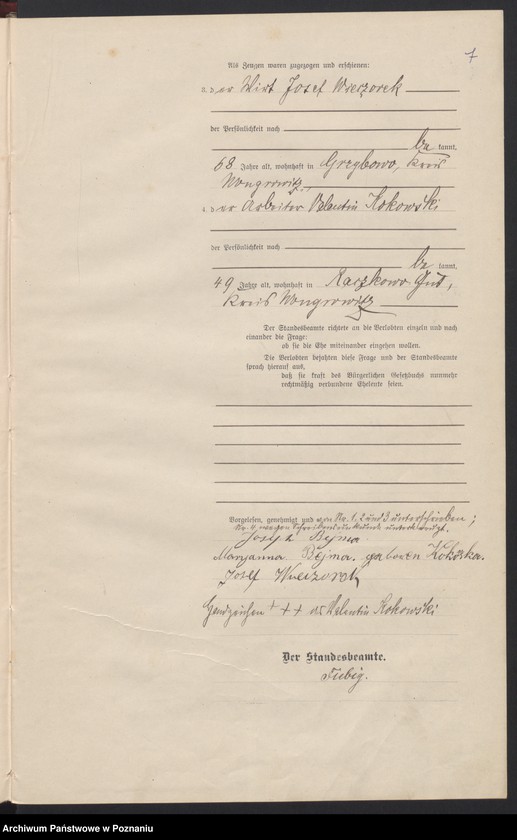 7
Als Zeugen waren zugezogen und erschienen:
3. der Wirt Josef Wieczorek
der Persönlichkeit nach
be kannt,
68 Jahre alt, wohnhaft in Grzybowo, Kreis
Wongrowitz,
4. der Arbeiter Valentin Kokowski
der Persönlichkeit nach
be kannt,
49 Jahre alt, wohnhaft in Raczkowo Gut,
Kreis Wongrowitz
Der Standesbeamte richtete an die Verlobten einzeln und nach
einander die Frage:
ob sie die Ehe miteinander eingehen wollen.
Die Verlobten bejahten diese Frage und der Standesbeamte
sprach hierauf aus,
daß sie kraft des Bürgerlichen Gesetzbuchs nunmehr
rechtmäßig verbundene Eheleute seien.
Vorgelesen, genehmigt und von Nr. 1, 2 und 3 unterschrieben;
Nr. 4 wegen Schreibensunkunde unterkreuzt.
Bejma
Maryanna Bejma. geboren
Josef Wieczorek
Handzeichen +++ des Valentin Kokowski
Der Standesbeamte.
Fiebig.
Archiwum Państwowe w Poznaniu